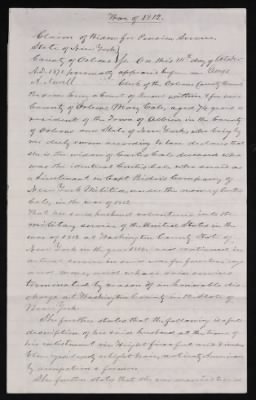 War of 1812.
Claim of Widow for Pension Service.
State of New York
County of Orleans } ss. On this 11th day of October
A.D. 1871 personally appeared before me
A. Clerk of the Orleans County Court
the same being a Court of Record within & for said
County of Orleans Mary Cole, aged years a
resident of the Town of Albion in the County
of Orleans and State of New York, who being by
me duly sworn according to law declares that
she is the widow of Curtis Cole deceased who
was the identical Curtis Cole, who served as
a Lieutenant in Capt Company of
New York Militia, under the name of Curtis
Cole, in the war of 1812
That her said husband volunteered into the
military service of the United States in the
war of 1812 at Washington County State of
New York in the year 1814, and continued in
actual service in said war for fourteen days
and more, and whose said service
terminated by reason of an honorable dis-
charge at Washington County in the State of
New York.
She further states that the following is a full
description of her said husband at the time of
his enlistment viz: Height five feet and
blue eyes light hair, nativity American
by occupation a farmer.
She further states that she was married to said